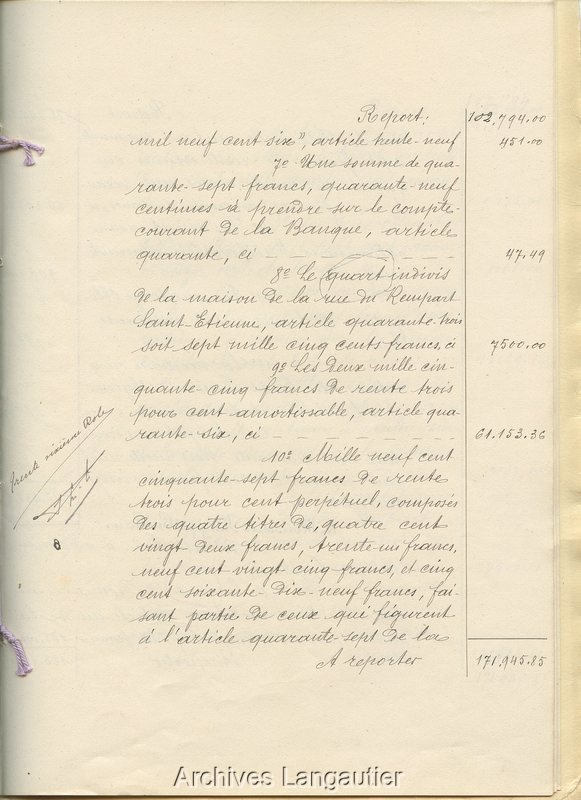 Report: 102,794.00
mil neuf cent six", article trente-neuf 451.00
7o Une somme de qua-
rante-sept francs, quarante-neuf
centimes à prendre sur le compte-
courant de la Banque, article
quarante, ci 47.49
8o Le quart indivis
de la maison de la rue du Rempart
Saint-Etienne, article quarante-trois
soit sept mille cinq cents francs, ci 7500.00
9o Les deux mille cin-
quante-cinq francs de rente trois
pour cent amortissable, article qua-
rante-six, ci 61.153.36
10o Mille neuf cent
cinquante-sept francs de rente
trois pour cent perpétuel, composés
des quatre titres de, quatre cent
vingt-deux francs, trente-un francs,
neuf cent vingt-cinq francs, et cinq
cent soixante-dix-neuf francs; fai-
sant partie de ceux qui figurent
à l'article quarante-sept de la
A reporter 171.945.85
trente sixième Rôle
Archives Langautier